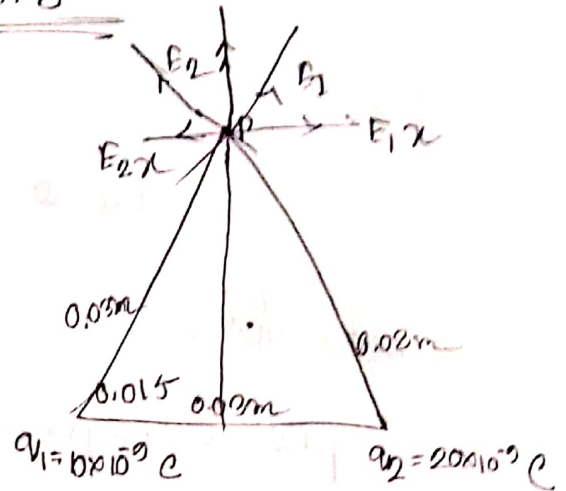 E₂
E₁
P
E₂x
E₁x
0.03m
0.02m
0.015
0.03m
q₁=10×10⁻⁹ C
q₂=20×10⁻⁹ C